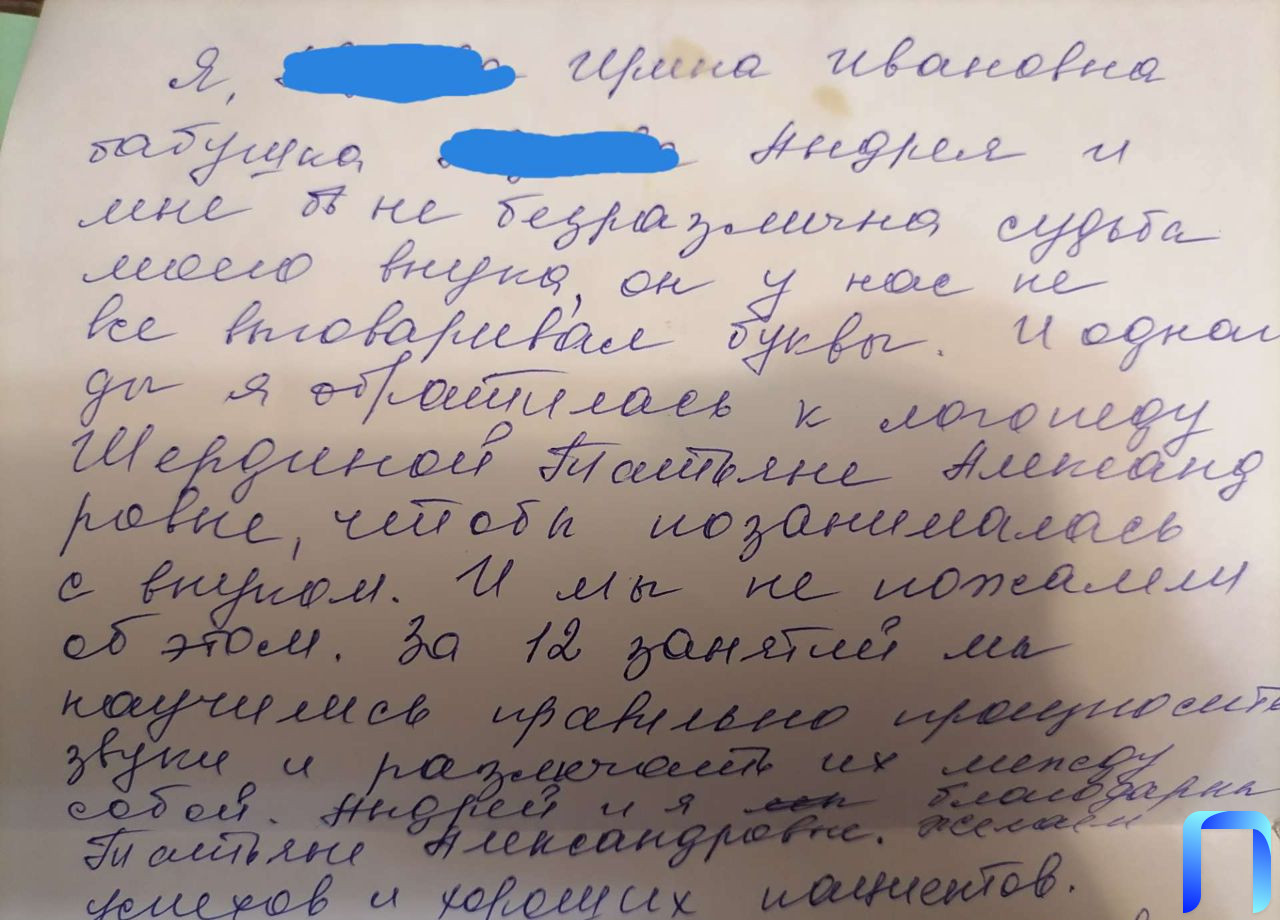 Я, Ирина Ивановна
бабушка Андрея и
мне не безразлична судьба
моего внука, он у нас не
все выговаривал буквы. И однаж
ды я обратилась к логопеду
Шердиной Татьяне Александ
ровне, чтобы позанималась
с внуком. И мы не пожалели
об этом. За 12 занятий мы
научились правильно произносить
звуки и различать их между
собой. Андрей и я благодарны
Татьяне Александровне. Желаем
успехов и хороших пациентов.